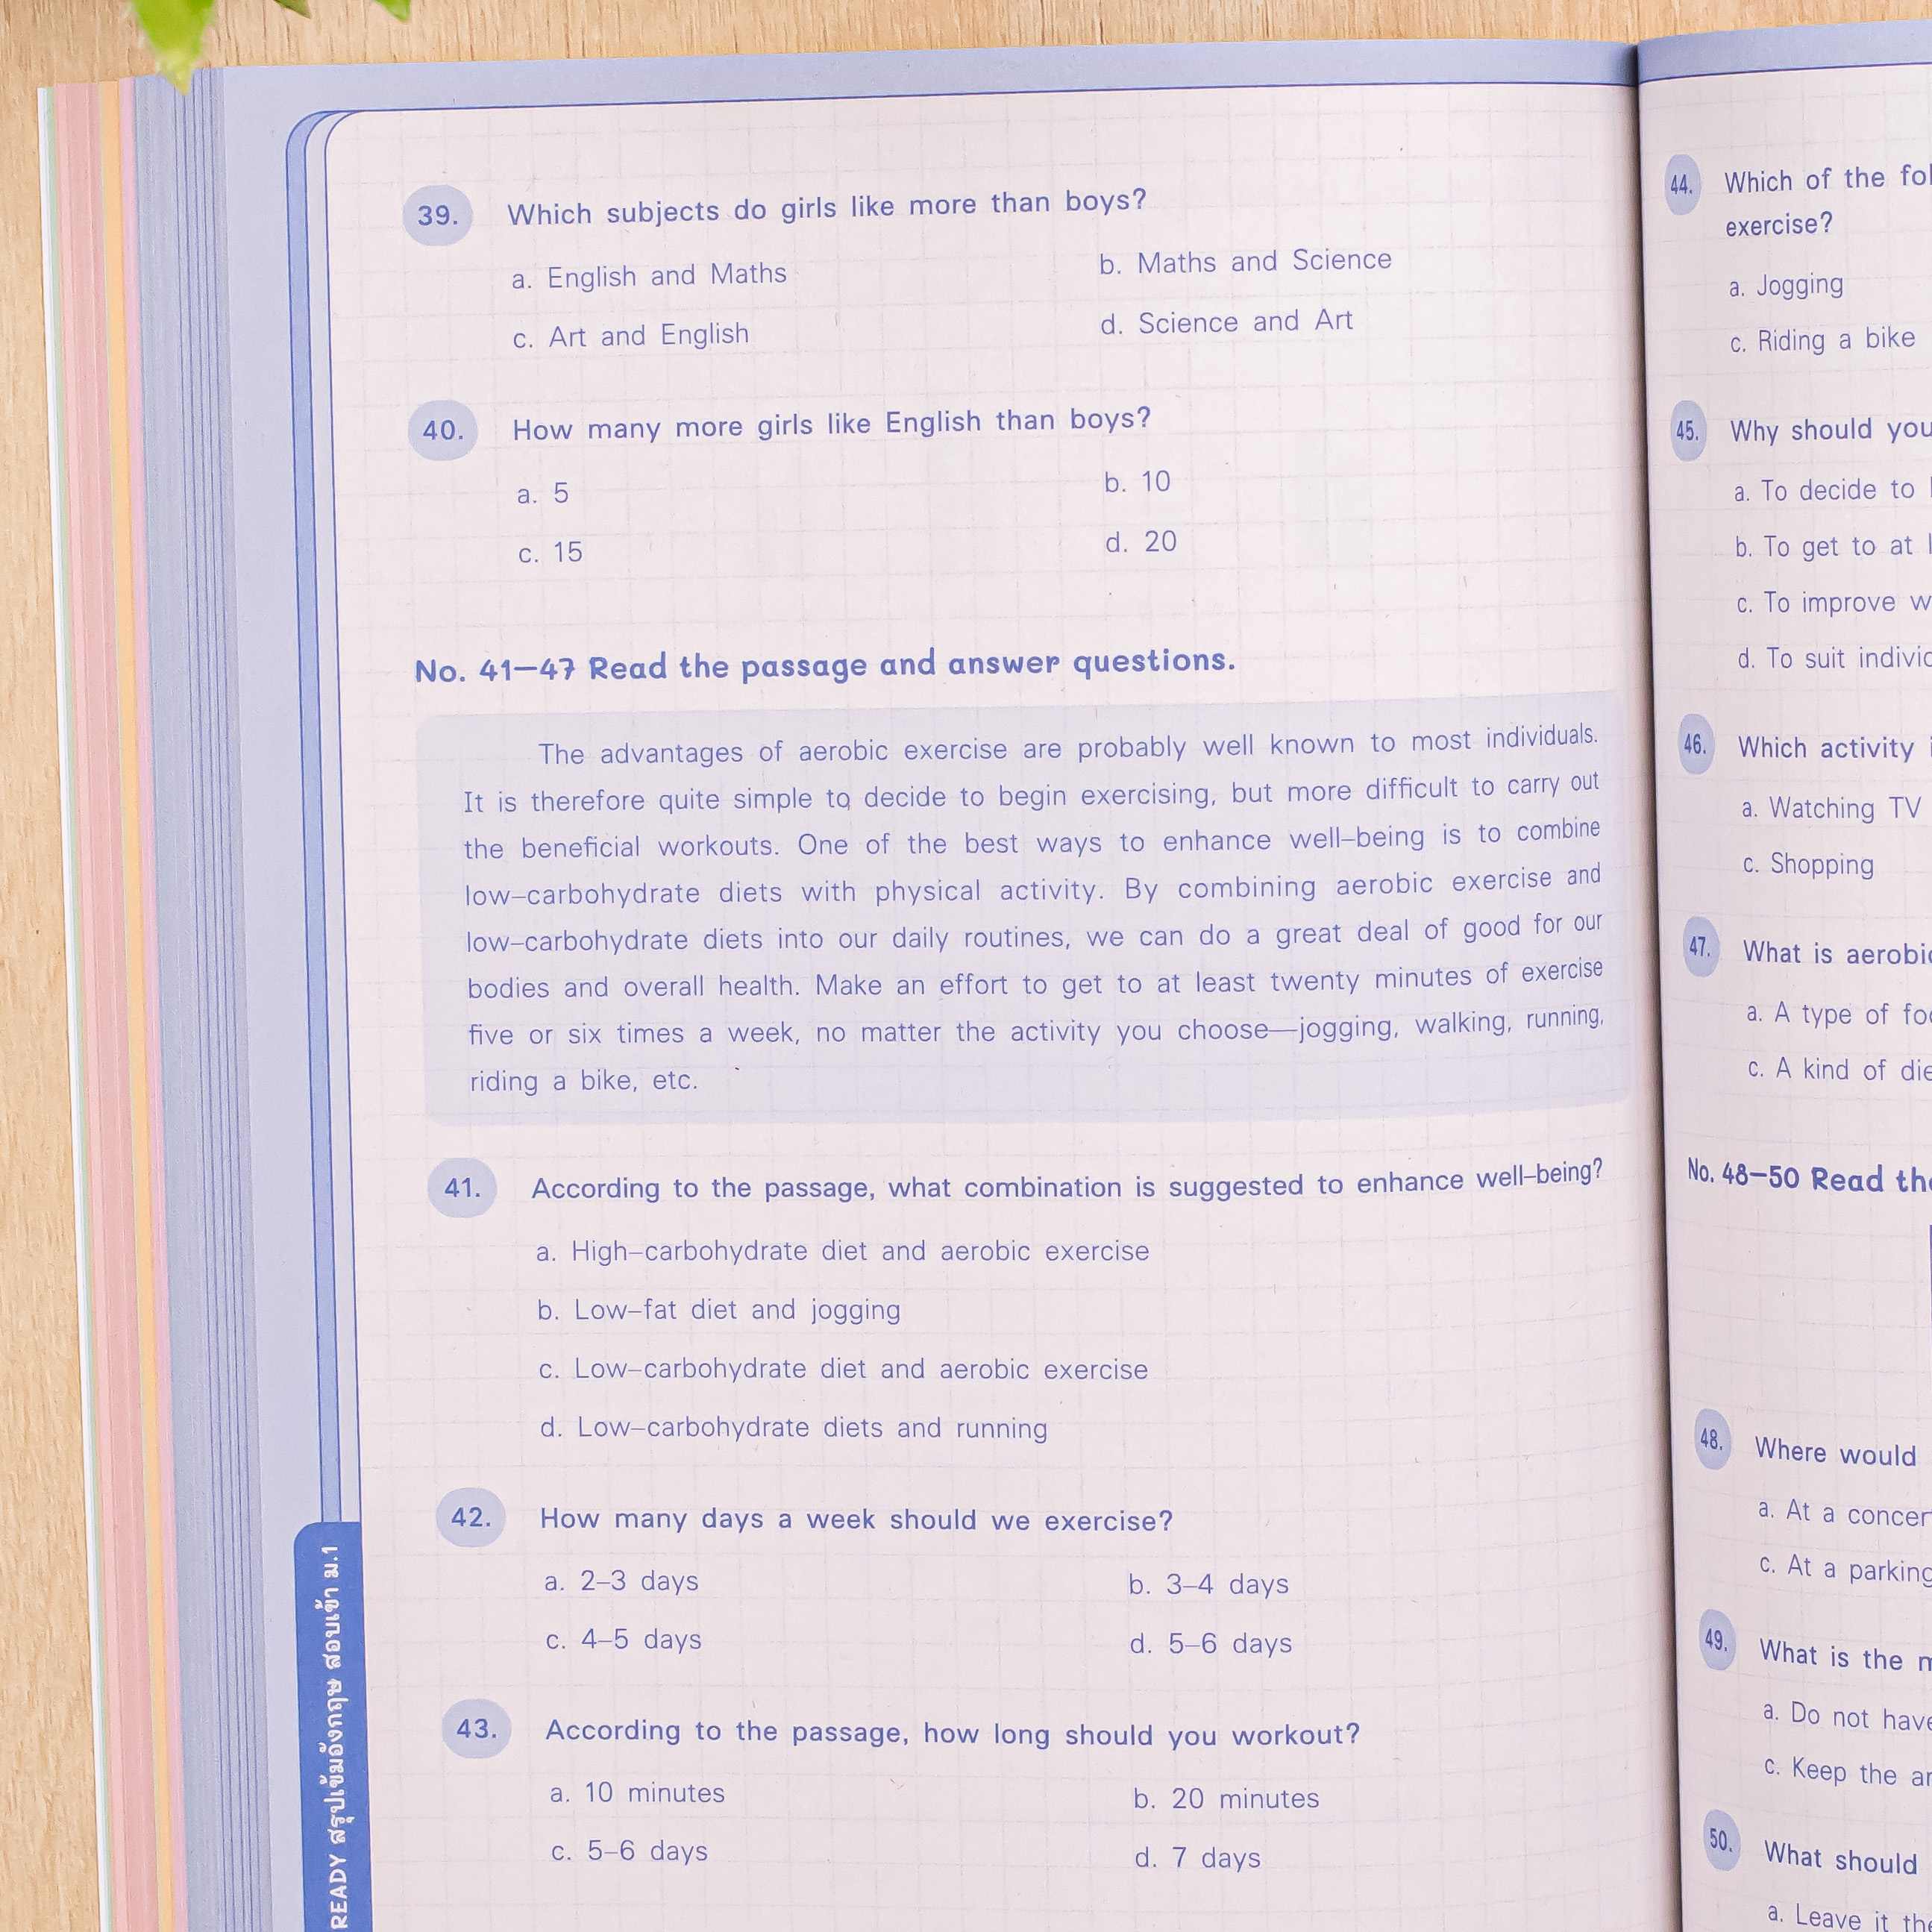 39. Which subjects do girls like more than boys?
a. English and Maths b. Maths and Science
c. Art and English d. Science and Art
40. How many more girls like English than boys?
a. 5 b. 10
c. 15 d. 20
No. 41–47 Read the passage and answer questions.
The advantages of aerobic exercise are probably well known to most individuals.
It is therefore quite simple to decide to begin exercising, but more difficult to carry out
the beneficial workouts. One of the best ways to enhance well–being is to combine
low–carbohydrate diets with physical activity. By combining aerobic exercise and
low–carbohydrate diets into our daily routines, we can do a great deal of good for our
bodies and overall health. Make an effort to get to at least twenty minutes of exercise
five or six times a week, no matter the activity you choose—jogging, walking, running,
riding a bike, etc.
41. According to the passage, what combination is suggested to enhance well–being?
a. High–carbohydrate diet and aerobic exercise
b. Low–fat diet and jogging
c. Low–carbohydrate diet and aerobic exercise
d. Low–carbohydrate diets and running
42. How many days a week should we exercise?
a. 2–3 days b. 3–4 days
c. 4–5 days d. 5–6 days
43. According to the passage, how long should you workout?
a. 10 minutes b. 20 minutes
c. 5–6 days d. 7 days
READY สรุปเข้มอังกฤษ สอบเข้า ม.1
44. Which of the
exercise?
a. Jogging
c. Riding a bike
45. Why should you
a. To decide to
b. To get to at
c. To improve
d. To suit
46. Which activity
a. Watching TV
c. Shopping
47. What is
a. A type of
c. A kind of
No. 48–50 Read
48. Where would
a. At a
c. At a
49. What is the
a. Do not have
c. Keep the
50. What should
a. Leave it